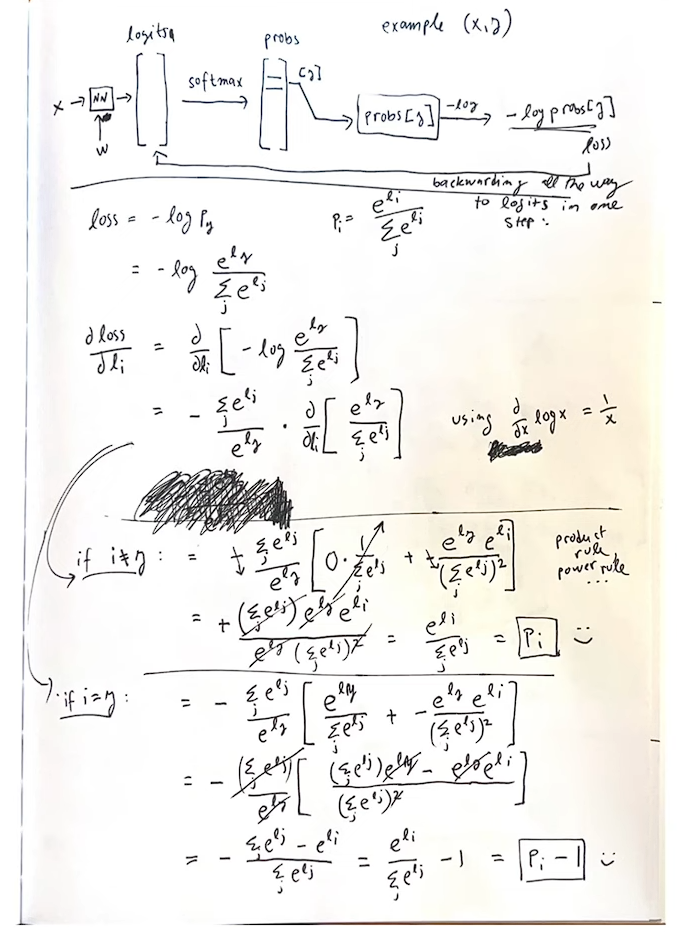 example (x,y)
logits
probs
softmax
[y]
x → NN →
w
probs[y] -log → - log probs[y]
loss
backwarding all the way
to logits in one
step:
loss = - log P_y    P_i = e^{l_i} / Σ_j e^{l_j}
= - log e^{l_y} / Σ_j e^{l_j}
∂loss/∂l_i = ∂/∂l_i [ - log e^{l_y} / Σ_j e^{l_j} ]
= - Σ_j e^{l_j} / e^{l_y} · ∂/∂l_i [ e^{l_y} / Σ_j e^{l_j} ]    using ∂/∂x log x = 1/x
if i≠y : = + Σ_j e^{l_j} / e^{l_y} [ 0 · 1 / Σ_j e^{l_j} + + e^{l_y} e^{l_i} / (Σ_j e^{l_j})^2 ]    product
rule
power rule
...
= + (Σ_j e^{l_j}) e^{l_y} e^{l_i} / e^{l_y} (Σ_j e^{l_j})^2 = e^{l_i} / Σ_j e^{l_j} = P_i :)
if i=y : = - Σ_j e^{l_j} / e^{l_y} [ e^{l_y} / Σ_j e^{l_j} + - e^{l_y} e^{l_i} / (Σ_j e^{l_j})^2 ]
= - (Σ_j e^{l_j}) / e^{l_y} [ (Σ_j e^{l_j}) e^{l_y} - e^{l_y} e^{l_i} / (Σ_j e^{l_j})^2 ]
= - Σ_j e^{l_j} - e^{l_i} / Σ_j e^{l_j} = e^{l_i} / Σ_j e^{l_j} - 1 = P_i - 1 :)